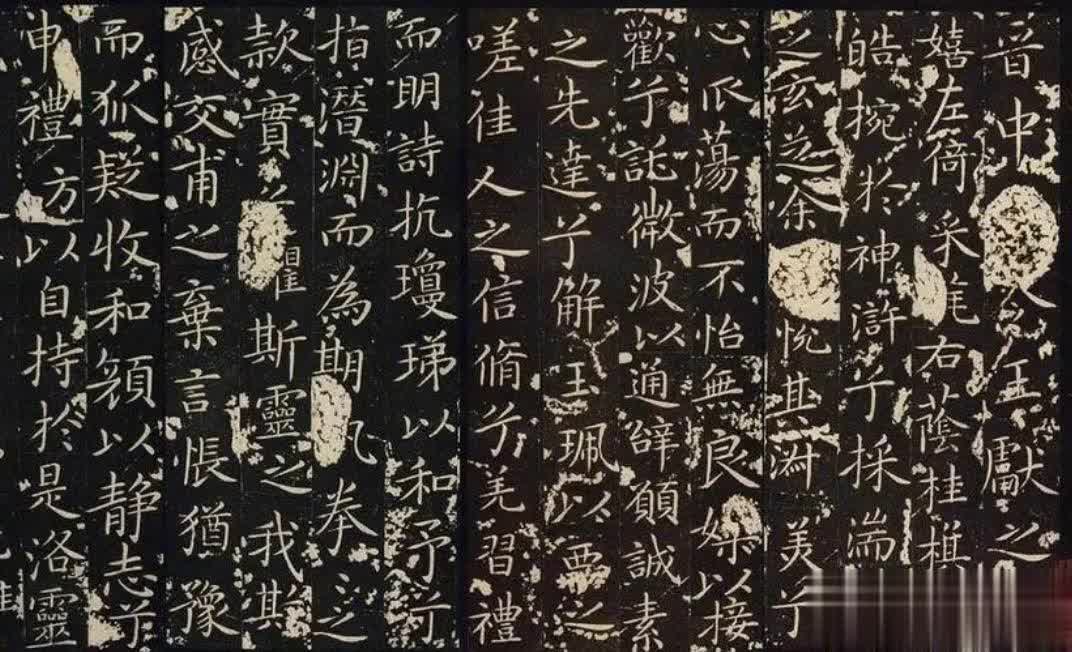 晉中王獻之
嬉左倚采旄右蔭桂旗
皓捥於神滸兮採湍
之玄芝余悅其淑美兮
心振蕩而不怡無良媒以接
歡兮託微波以通辭願誠素
之先達兮解玉珮以要之
嗟佳人之信脩兮羌習禮
而明詩抗瓊珶以和予兮
指潛淵而為期執拳之
款實兮懼斯靈之我欺
感交甫之棄言悵猶豫
而狐疑收和顏以靜志兮
申禮防以自持於是洛靈